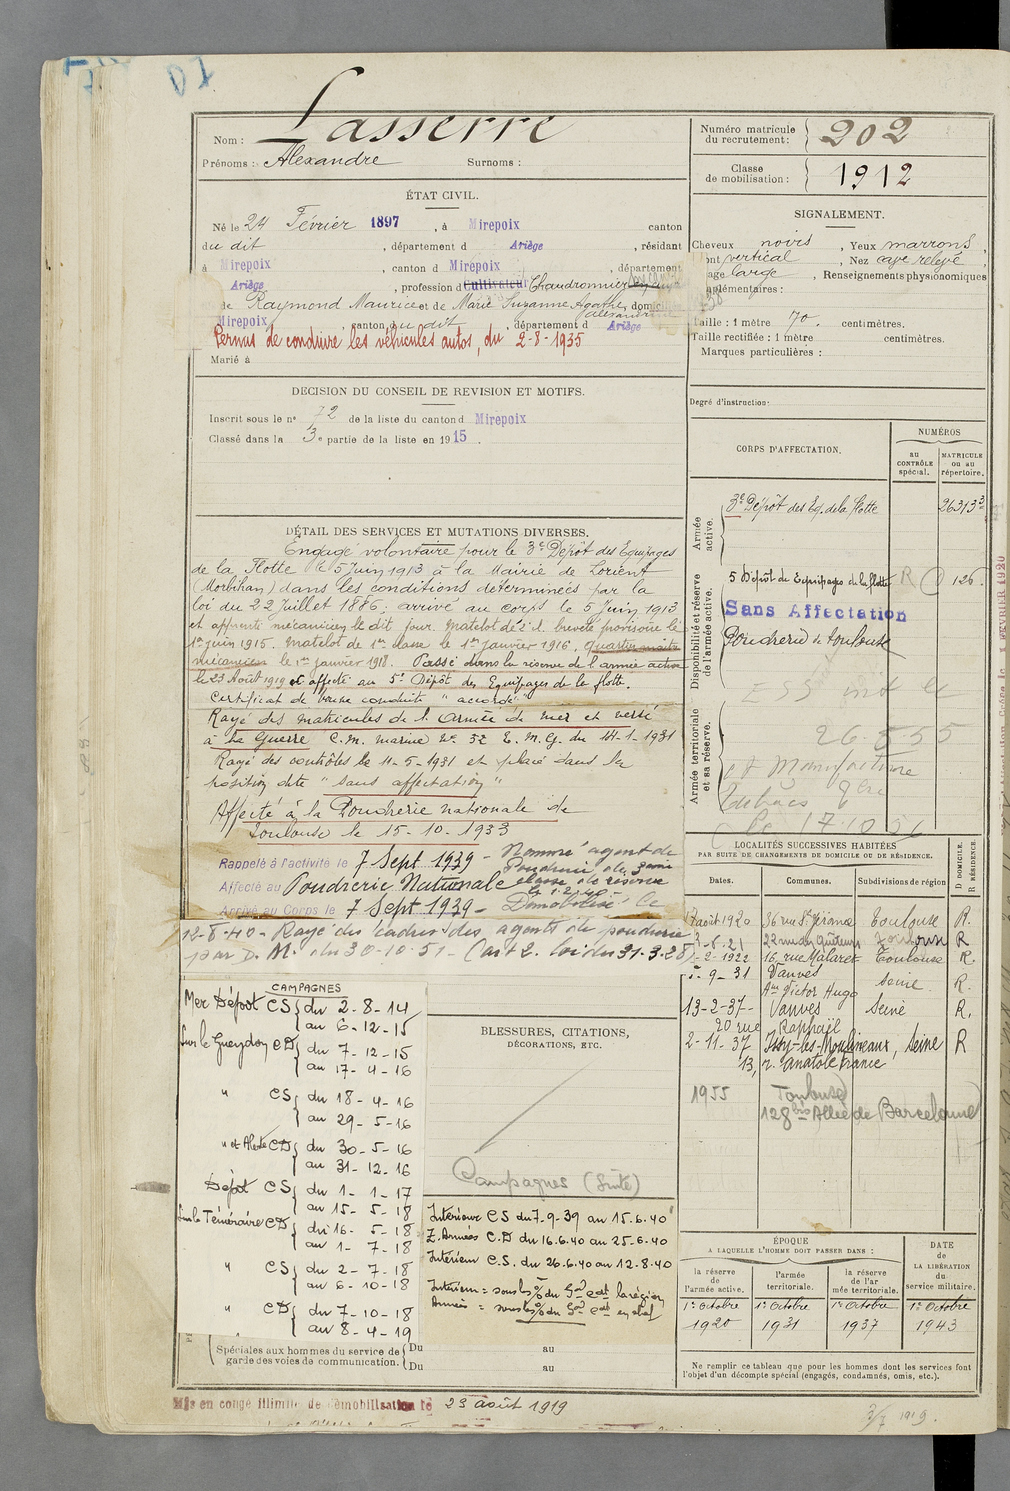 Nom : Lasserre
Prénoms : Alexandre Surnoms :
Numéro matricule du recrutement : 202
Classe de mobilisation : 1912
ÉTAT CIVIL.
Né le 24 Février 1897, à Mirepoix canton
du dit, département d Ariège, résidant
à Mirepoix, canton d Mirepoix, département
Ariège, profession d Cultivateur Chaudronnier
de Raymond Maurice et de Marie Suzanne Agathe domicil
Mirepoix canton du dit, département d Ariège
Permis de conduire les véhicules autos, du 2-8-1935
Marié à
SIGNALEMENT.
Cheveux noirs, Yeux marrons,
Front vertical, Nez cave relevé,
large, Renseignements physionomiques
plémentaires :
Taille : 1 mètre 70. centimètres.
Taille rectifiée : 1 mètre centimètres.
Marques particulières :
Degré d'instruction :
DÉCISION DU CONSEIL DE REVISION ET MOTIFS.
Inscrit sous le n° 72 de la liste du canton d Mirepoix
Classé dans la 3e partie de la liste en 1915.
DÉTAIL DES SERVICES ET MUTATIONS DIVERSES.
Engagé volontaire pour le 3e Dépôt des Equipages
de la Flotte le 5 Juin 1913 à la Mairie de Lorient
(Morbihan) dans les conditions déterminées par la
loi du 22 Juillet 1886; arrivé au corps le 5 Juin 1913
et apprenti mécanicien le dit jour. Matelot de 2e cl. breveté provisoire le
1er juin 1915. Matelot de 1ère classe le 1er Janvier 1916. Quartier maître
mécanicien le 1er Janvier 1918. Passé dans la réserve de l'armée active
le 23 Août 1919 et affecté au 5e Dépôt des Equipages de la flotte.
Certificat de bonne conduite "accordé"
Rayé des matricules de l'Armée de mer et versé
à la Guerre C.M. marine N° 32 E.M.G. du 14-1-1931
Rayé des contrôles le 11-5-1931 et placé dans la
position dite "sans affectation"
Affecté à la Poudrerie nationale de
Toulouse le 15-10-1933
Rappelé à l'activité le 7 Sept 1939 - Nommé agent de
Poudrerie de 3eme
Affecté au Poudrerie Nationale classe de réserve
le 1-2-40
Arrivé au Corps le 7 Sept 1939 - Démobilisé le
12-8-40 - Rayé des cadres des agents de poudrerie
par D.M. du 30-10-51 - (art 2. loi du 31-3-28)
CORPS D'AFFECTATION.
NUMÉROS
au CONTRÔLE spécial.
MATRICULE ou au répertoire.
Armée active.
3e Dépôt des Eq. de la flotte 26313 3
Disponibilité et réserve de l'armée active.
5 Dépôt de Equipages de la flotte R 126.
Sans Affectation
Poudrerie de Toulouse
Armée territoriale et sa réserve.
26-5-55
Manufacture
le 17.10.51
LOCALITÉS SUCCESSIVES HABITÉES
PAR SUITE DE CHANGEMENTS DE DOMICILE OU DE RÉSIDENCE.
Dates. Communes. Subdivisions de région D DOMICILE. R RÉSIDENCE.
août 1920 36 rue St Jérome Toulouse R.
3-8-21 22 rue Toulouse R
-2-1922 16, rue Malaret Toulouse R.
-9-31 Vanves Seine R.
Ave Victor Hugo
13-2-37- Vanves Seine R.
20 rue Raphaël
2-11-37 Issy-les-Moulineaux, Seine R
13, r. Anatole France
1955 Toulouse
128 bis Allée de Barcelonne
CAMPAGNES
Mer Dépôt CS du 2-8-14
au 6-12-15
Sur le Gueydon CD du 7-12-15
au 17-4-16
" CS du 18-4-16
au 29-5-16
" et Alerte CD du 30-5-16
au 31-12-16
Dépôt CS du 1-1-17
au 15-5-18
Sur le Téméraire CD du 16-5-18
au 1-7-18
" CS du 2-7-18
au 6-10-18
" CD du 7-10-18
au 8-4-19
BLESSURES, CITATIONS,
DÉCORATIONS, ETC.
Campagnes (Suite)
Intérieur C S du 7-9-39 au 15.6.40
Z. Armées C.D du 16.6.40 au 25-6-40
Intérieur C.S. du 26.6.40 au 12-8-40
Intérieur = sous les % du Gal Cdt la région
Armées = sous les % du Gal Cdt en chef
Spéciales aux hommes du service de garde des voies de communication.
Du au
Du au
ÉPOQUE
A LAQUELLE L'HOMME DOIT PASSER DANS :
DATE DE LA LIBÉRATION du service militaire.
la réserve de l'armée active.
l'armée territoriale.
la réserve de l'armée territoriale.
1er Octobre 1920
1er Octobre 1931
1er Octobre 1937
1er Octobre 1943
Ne remplir ce tableau que pour les hommes dont les services font
l'objet d'un décompte spécial (engagés, condamnés, omis, etc.).
Mis en congé illimité de démobilisation le 23 août 1919